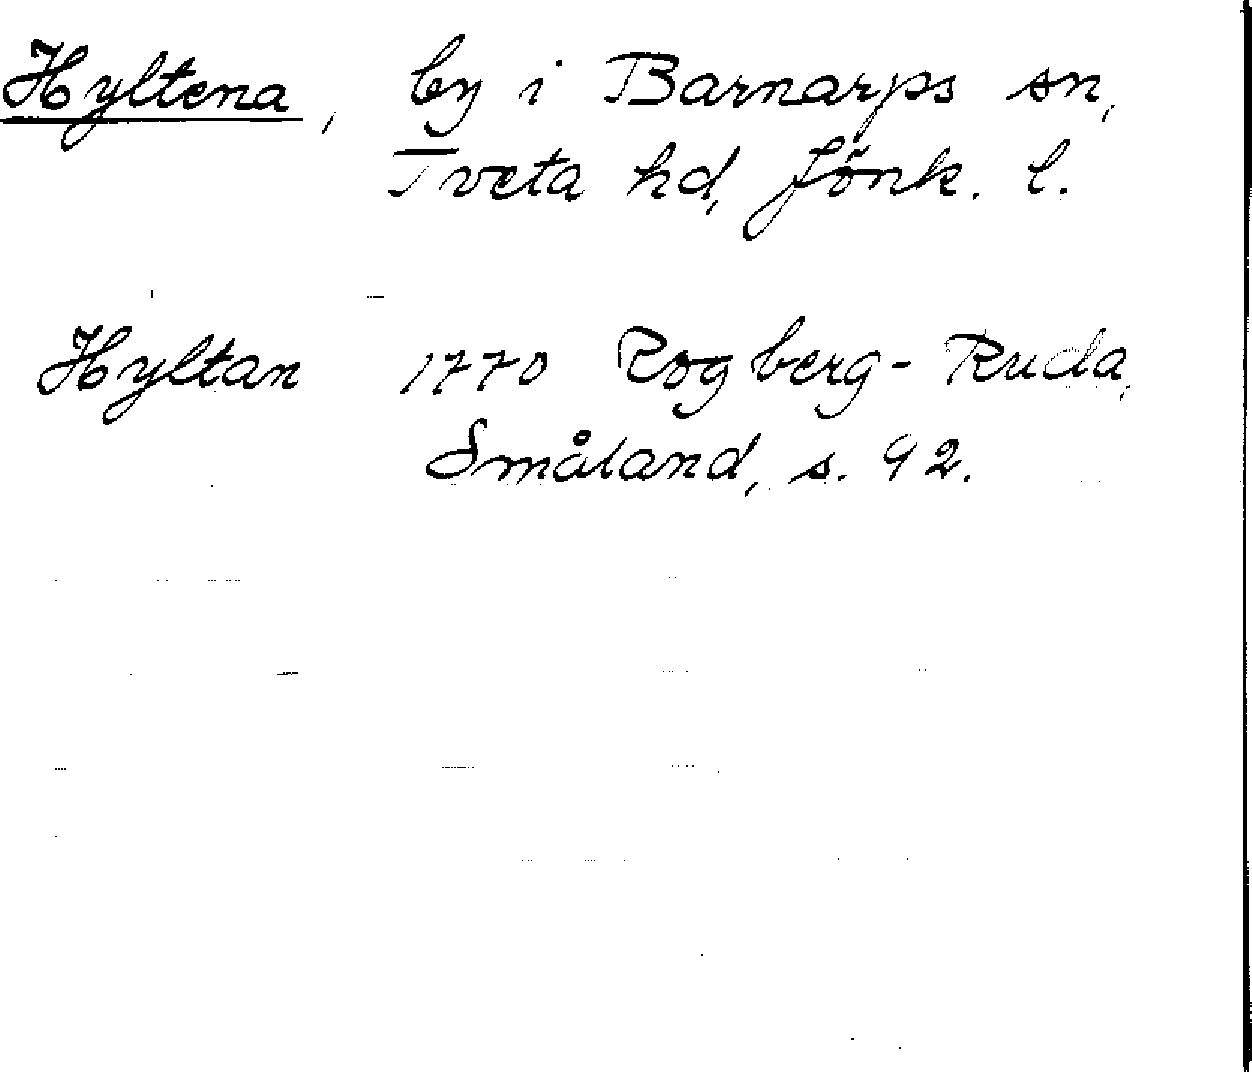 Hyltena, by i Barnarps sn,
Tveta hd, Jönk. l.
Hyltan 1770 Rogberg-Ruda,
Småland, s. 92.